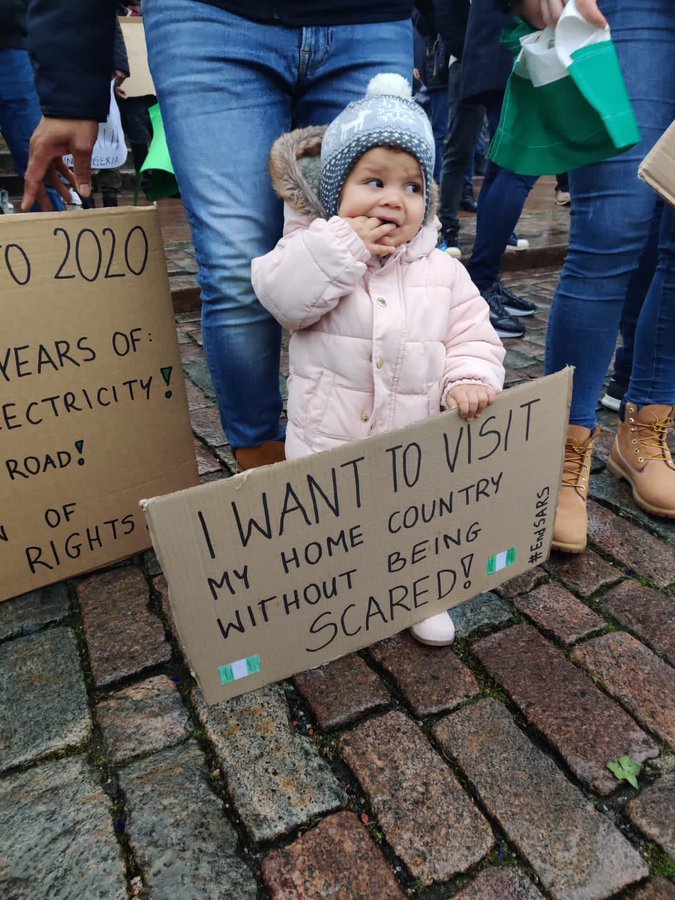 TO 2020
YEARS OF:
LECTRICITY!
ROAD!
OF
RIGHTS
I WANT TO VISIT
MY HOME COUNTRY
WITHOUT BEING
SCARED!
#EndSARS
NIGERIA